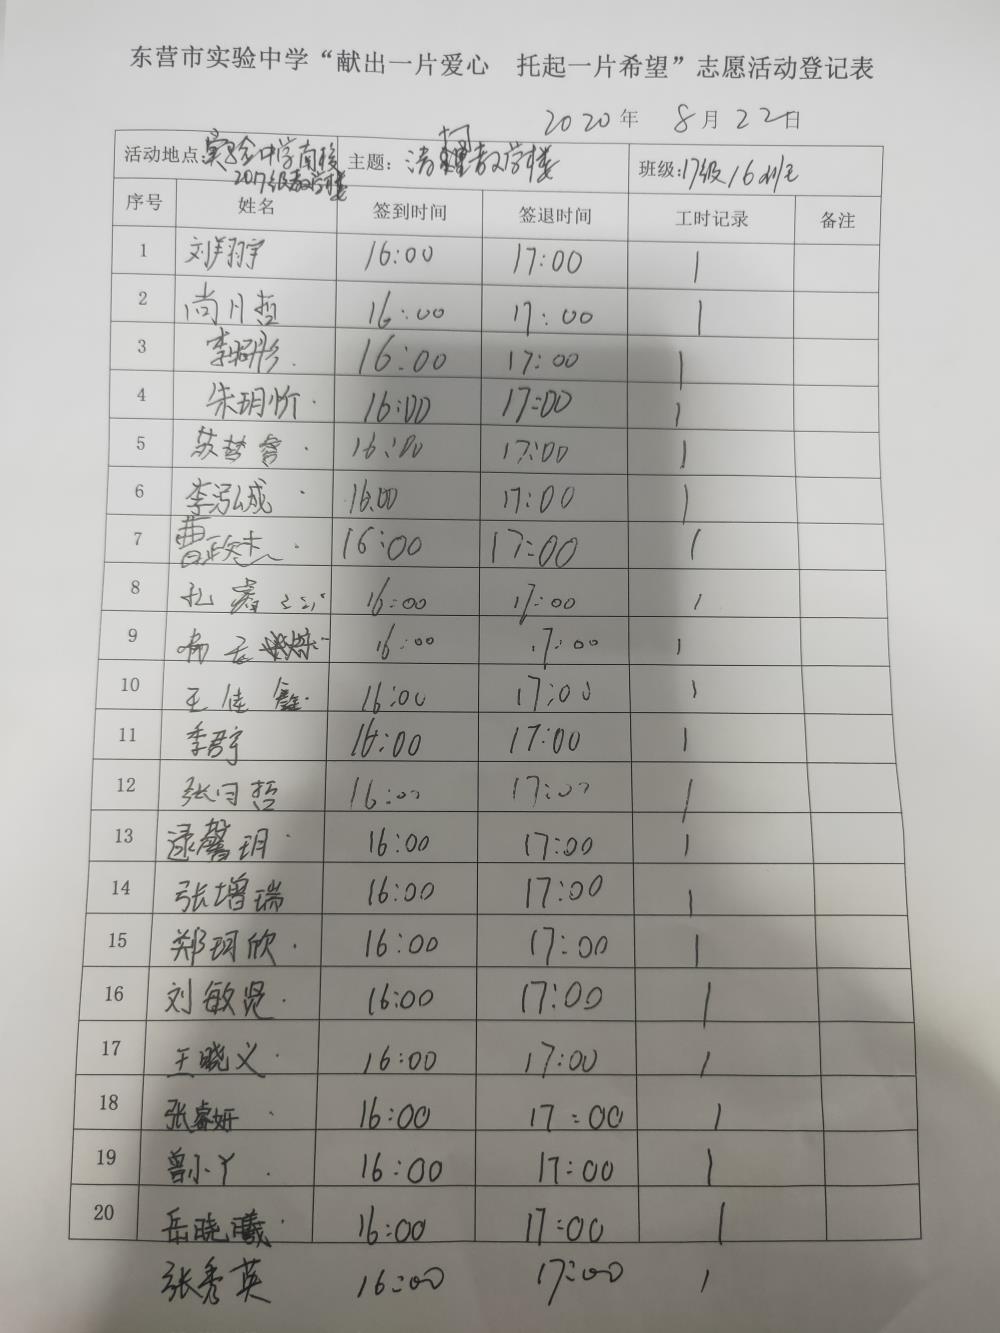 东营市实验中学“献出一片爱心 托起一片希望”志愿活动登记表
2020年 8月22日
活动地点:实验中学南校2017级教学楼 主题: 清扫教学楼 班级:17级16班
序号 姓名 签到时间 签退时间 工时记录 备注
1 刘翔宇 16:00 17:00 1
2 尚月哲 16:00 17:00 1
3 李昭彤 16:00 17:00 1
4 朱玥忻 16:00 17:00 1
5 苏梦睿 16:00 17:00 1
6 李泓成 16:00 17:00 1
7 曹政杰 16:00 17:00 1
8 孔睿 16:00 17:00 1
9 16:00 17:00 1
10 王佳鑫 16:00 17:00 1
11 季君宇 16:00 17:00 1
12 张闫哲 16:00 17:00 1
13 逯馨玥 16:00 17:00 1
14 张增瑞 16:00 17:00 1
15 郑珂欣 16:00 17:00 1
16 刘敏贤 16:00 17:00 1
17 王晓义 16:00 17:00 1
18 张睿妍 16:00 17:00 1
19 曾小丫 16:00 17:00 1
20 岳晓曦 16:00 17:00 1
张秀英 16:00 17:00 1